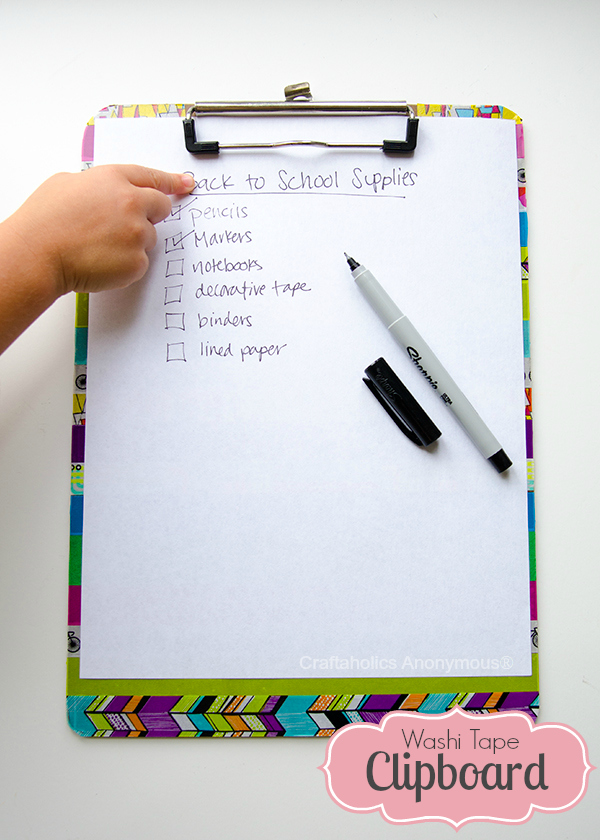 Back to School Supplies
pencils
Markers
notebooks
decorative tape
binders
lined paper
Sharpie
Craftaholics Anonymous®
Washi Tape
Clipboard